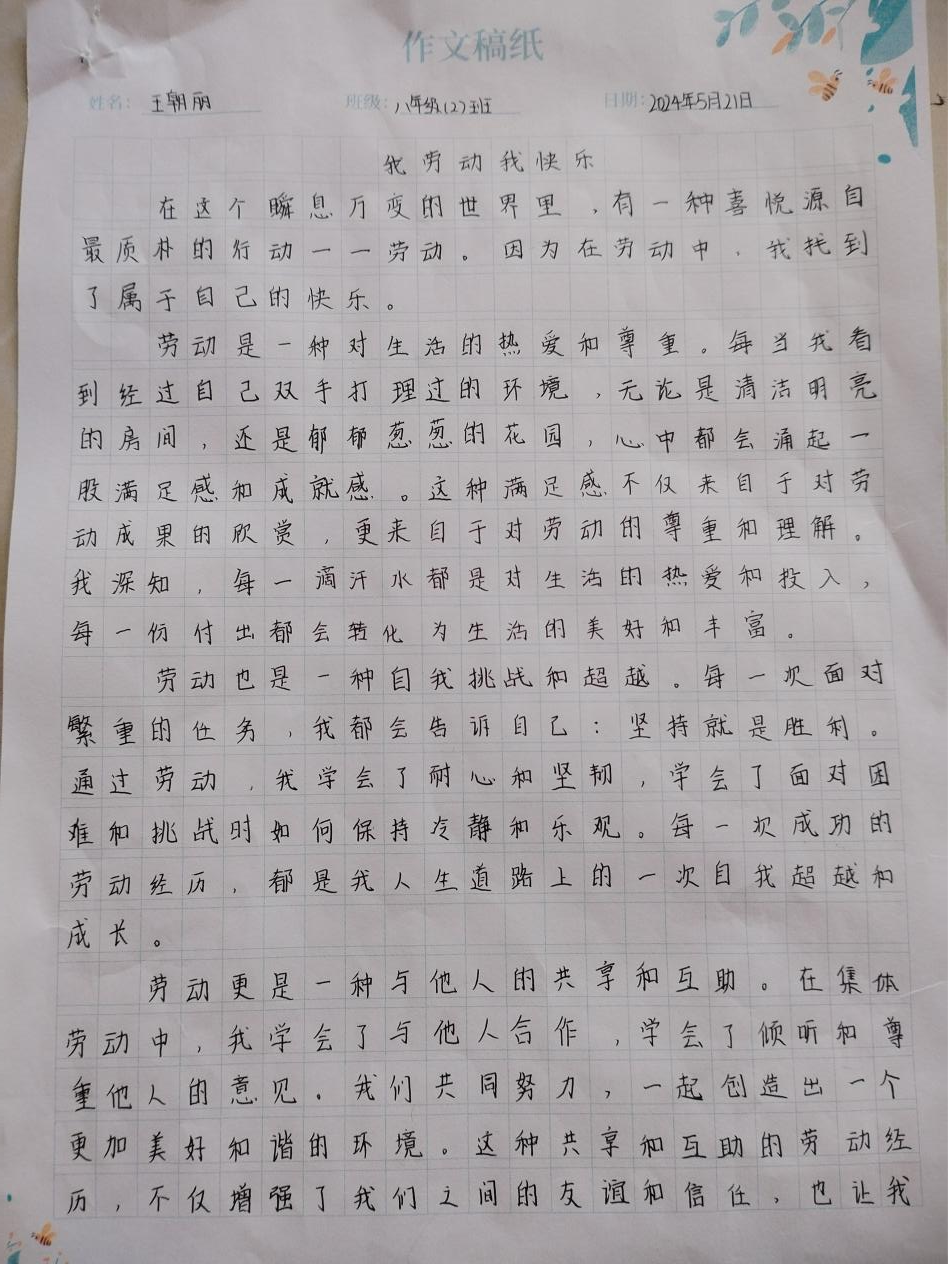 作文稿纸
姓名：王朝丽 班级：八年级(2)班 日期：2024年5月21日
我劳动我快乐
在这个瞬息万变的世界里，有一种喜悦源自
最质朴的行动——劳动。因为在劳动中，我找到
了属于自己的快乐。
劳动是一种对生活的热爱和尊重。每当我看
到经过自己双手打理过的环境，无论是清洁明亮
的房间，还是郁郁葱葱的花园，心中都会涌起一
股满足感和成就感。这种满足感不仅来自于对劳
动成果的欣赏，更来自于对劳动的尊重和理解。
我深知，每一滴汗水都是对生活的热爱和投入，
每一份付出都会转化为生活的美好和丰富。
劳动也是一种自我挑战和超越。每一次面对
繁重的任务，我都会告诉自己：坚持就是胜利。
通过劳动，我学会了耐心和坚韧，学会了面对困
难和挑战时如何保持冷静和乐观。每一次成功的
劳动经历，都是我人生道路上的一次自我超越和
成长。
劳动更是一种与他人的共享和互助。在集体
劳动中，我学会了与他人合作，学会了倾听和尊
重他人的意见。我们共同努力，一起创造出一个
更加美好和谐的环境。这种共享和互助的劳动经
历，不仅增强了我们之间的友谊和信任，也让我